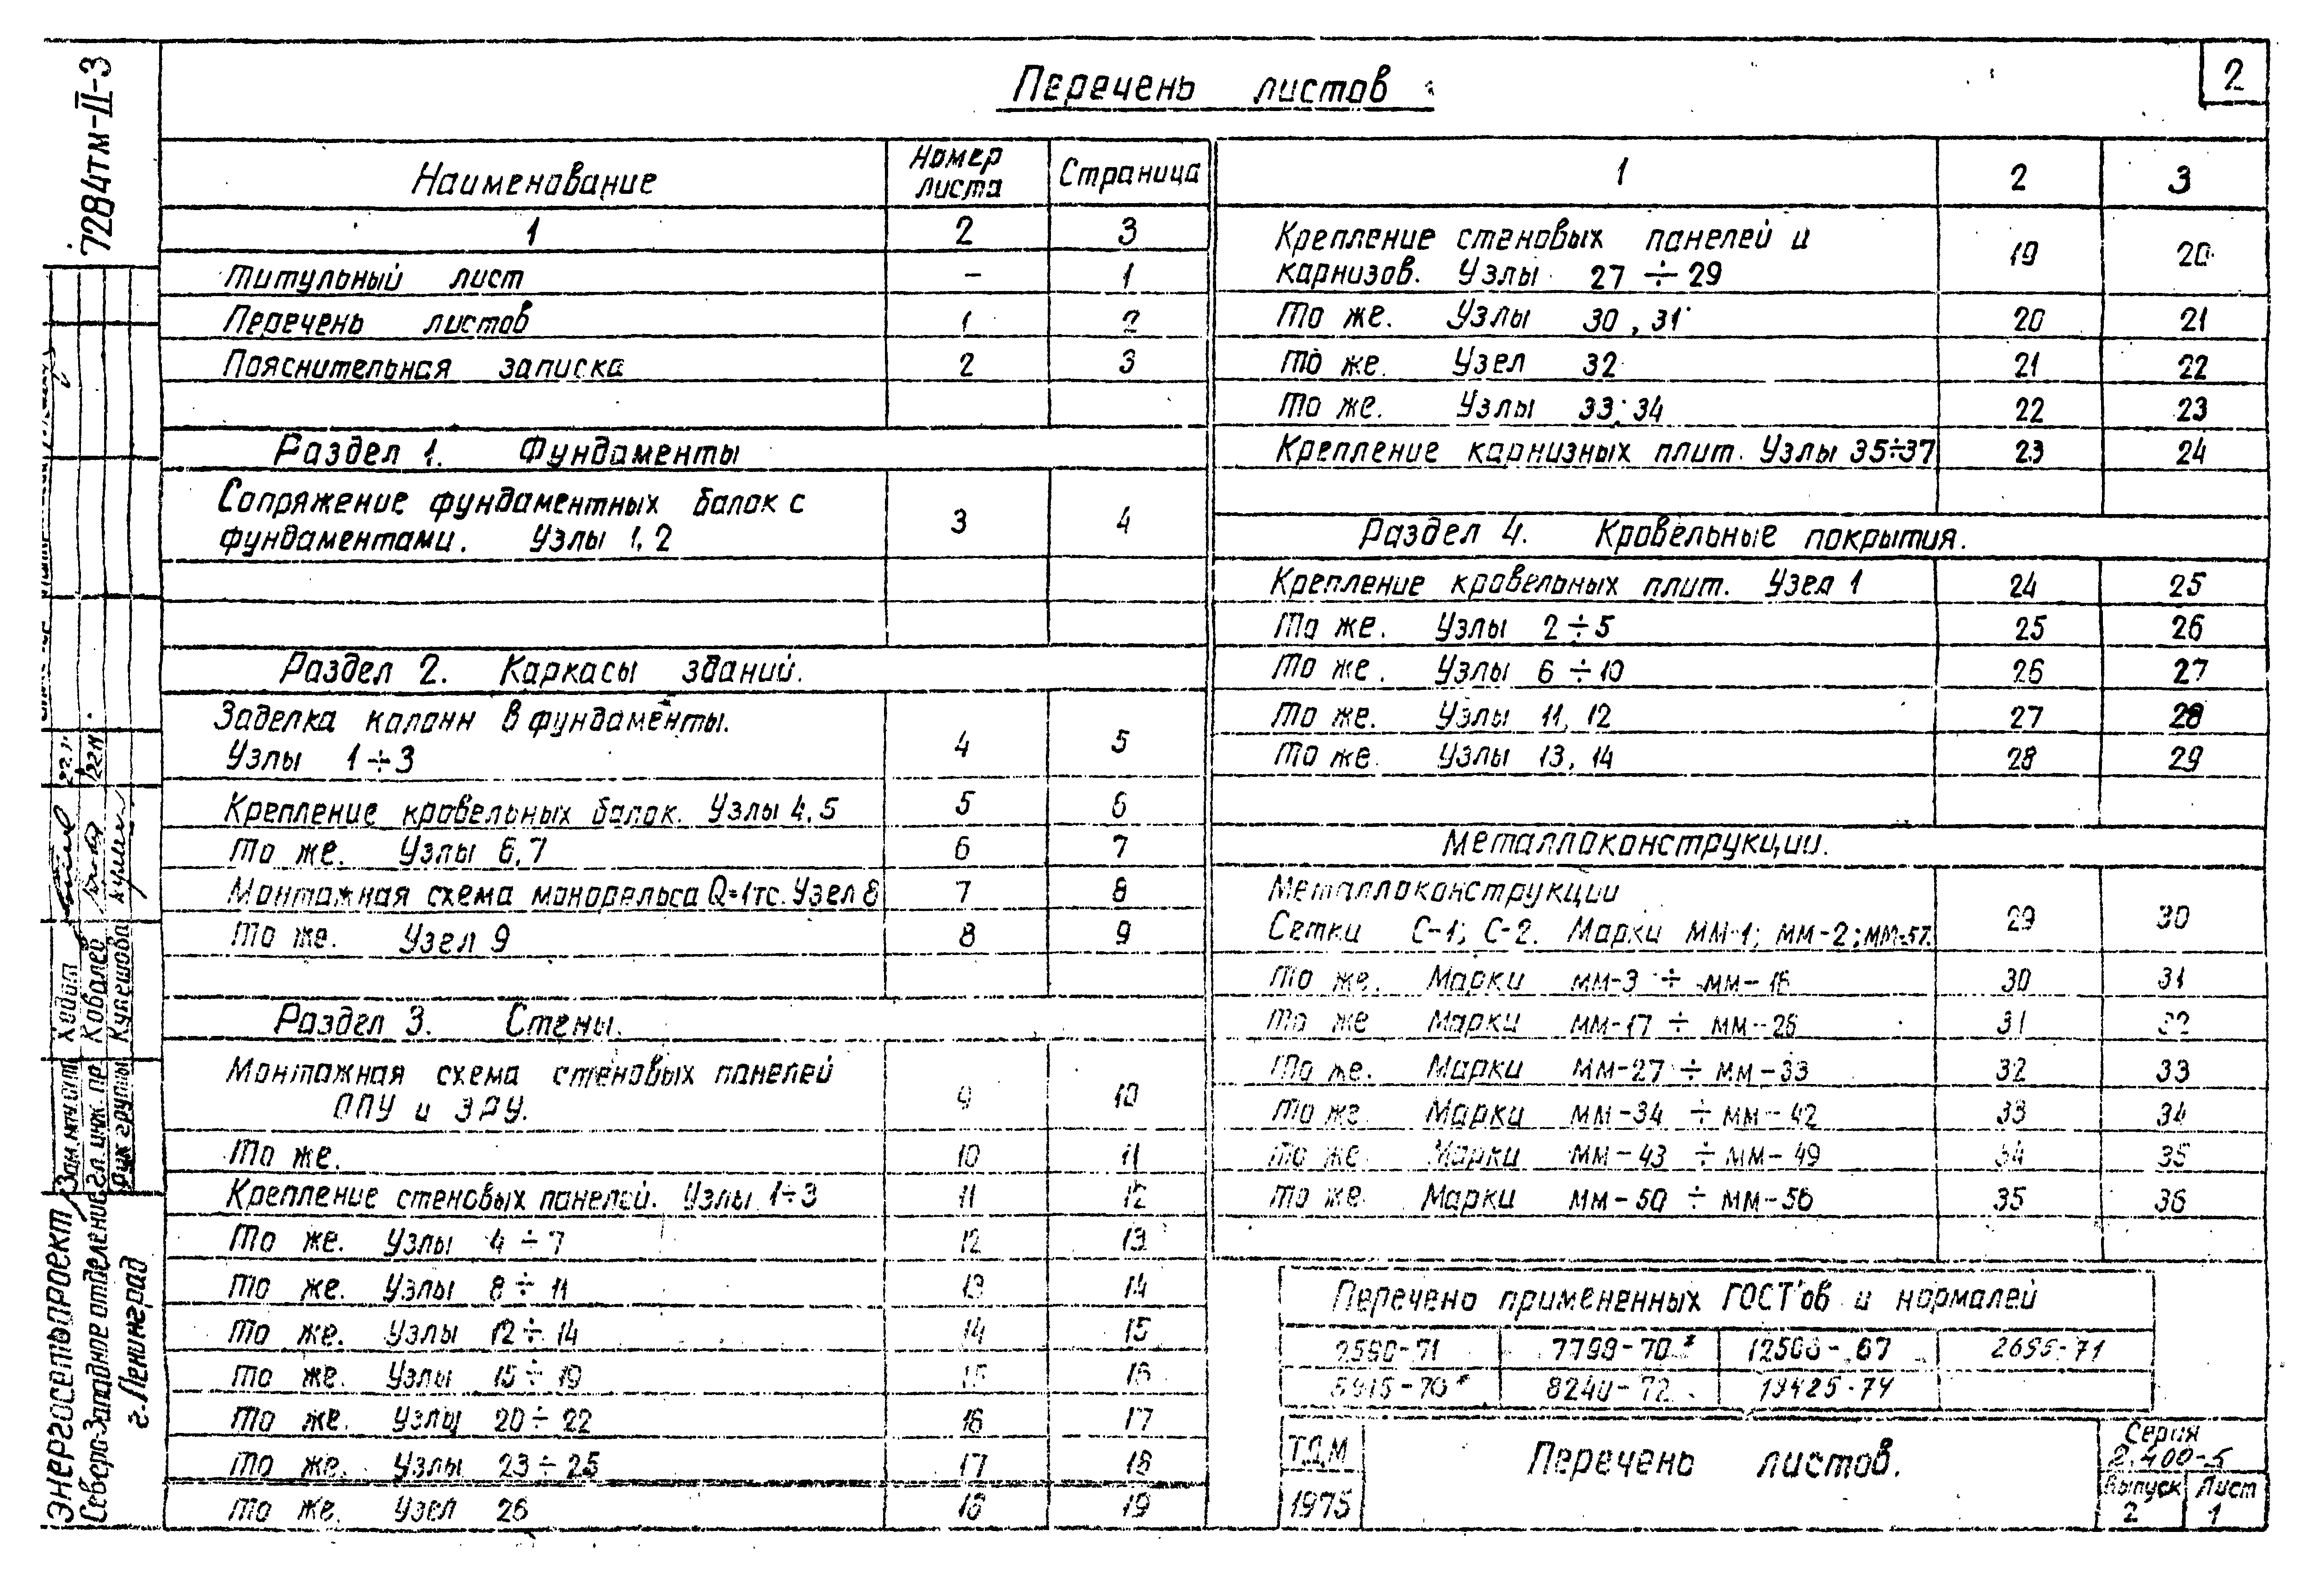 7284тм-II-3
Перечень листов
2
Наименование Номер листа Страница
1 2 3
Титульный лист – 1
Перечень листов 1 2
Пояснительная записка 2 3
Раздел 1. Фундаменты
Сопряжение фундаментных балок с
фундаментами. Узлы 1,2 3 4
Раздел 2. Каркасы зданий.
Заделка колонн в фундаменты.
Узлы 1÷3 4 5
Крепление кровельных балок. Узлы 4,5 5 6
То же. Узлы 6,7 6 7
Монтажная схема монорельса Q=1тс. Узел 8 7 8
То же. Узел 9 8 9
Раздел 3. Стены.
Монтажная схема стеновых панелей
ОПУ и ЗРУ. 9 10
То же. 10 11
Крепление стеновых панелей. Узлы 1÷3 11 12
То же. Узлы 4÷7 12 13
То же. Узлы 8÷11 13 14
То же. Узлы 12÷14 14 15
То же. Узлы 15÷19 15 16
То же. Узлы 20÷22 16 17
То же. Узлы 23÷25 17 18
То же. Узел 26 18 19
1 2 3
Крепление стеновых панелей и
карнизов. Узлы 27÷29 19 20
То же. Узлы 30, 31 20 21
То же. Узел 32 21 22
То же. Узлы 33; 34 22 23
Крепление карнизных плит. Узлы 35÷37 23 24
Раздел 4. Кровельные покрытия.
Крепление кровельных плит. Узел 1 24 25
То же. Узлы 2÷5 25 26
То же. Узлы 6÷10 26 27
То же. Узлы 11, 12 27 28
То же. Узлы 13, 14 28 29
Металлоконструкции.
Металлоконструкции
Сетки С-1; С-2. Марки ММ-1; ММ-2; ММ-57. 29 30
То же. Марки ММ-3 ÷ ММ-16 30 31
То же Марки ММ-17 ÷ ММ-26 31 32
То же. Марки ММ-27 ÷ ММ-33 32 33
То же. Марки ММ-34 ÷ ММ-42 33 34
То же Марки ММ-43 ÷ ММ-49 34 35
То же. Марки ММ-50 ÷ ММ-56 35 36
Перечень примененных ГОСТ'ов и нормалей
2590-71 7798-70* 67 71
5915-70* 8240-72 19425-74
ТДМ
1975
Перечень листов.
Серия
2.400-5
Выпуск
2
Лист
1
Энергосетьпроект
Северо-Западное отделение
г. Ленинград
Гл. инж. пр. Ковалев
Рук. группы Кулешова